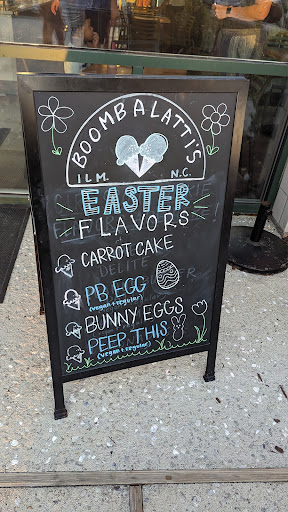 BOOMBALATTI'S
ILM. N.C.
EASTER
FLAVORS
CARROT CAKE
PB EGG
(vegan + regular)
BUNNY EGGS
PEEP THIS
(vegan + regular)